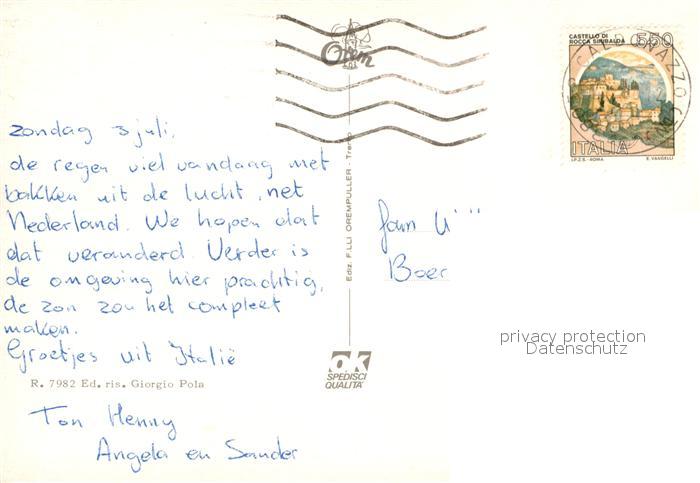 Orem
CASTELLO DI
ROCCA SINIBALDA 550
ITALIA
I.P.Z.S. - ROMA E. VANGELLI
zondag 3 juli,
de regen viel vandaag met
bakken uit de lucht, net
Nederland. We hopen dat
dat veranderd. Verder is
de omgeving hier prachtig,
de zon zou het compleet
maken.
Groetjes uit Italië
R. 7982 Ed. ris. Giorgio Pola
Ton Henny
Angela en Sander
Ediz. F.LLI OREMPULLER - Trento
OK
SPEDISCI
QUALITA'
Fam
Boer
privacy protection
Datenschutz